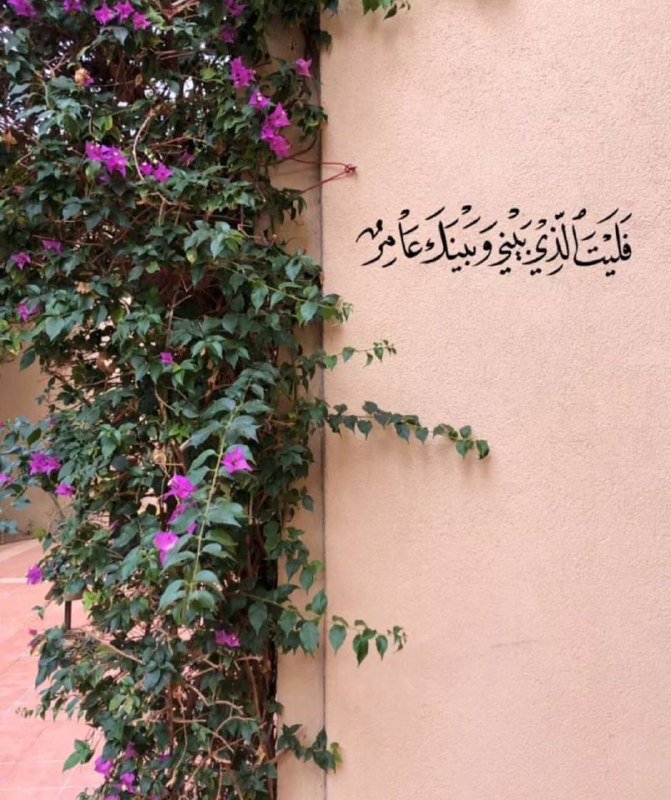 فَلَيْتَ ٱلَّذِيْ بَيْنِي وَبَيْنَكَ عَامِرٌ